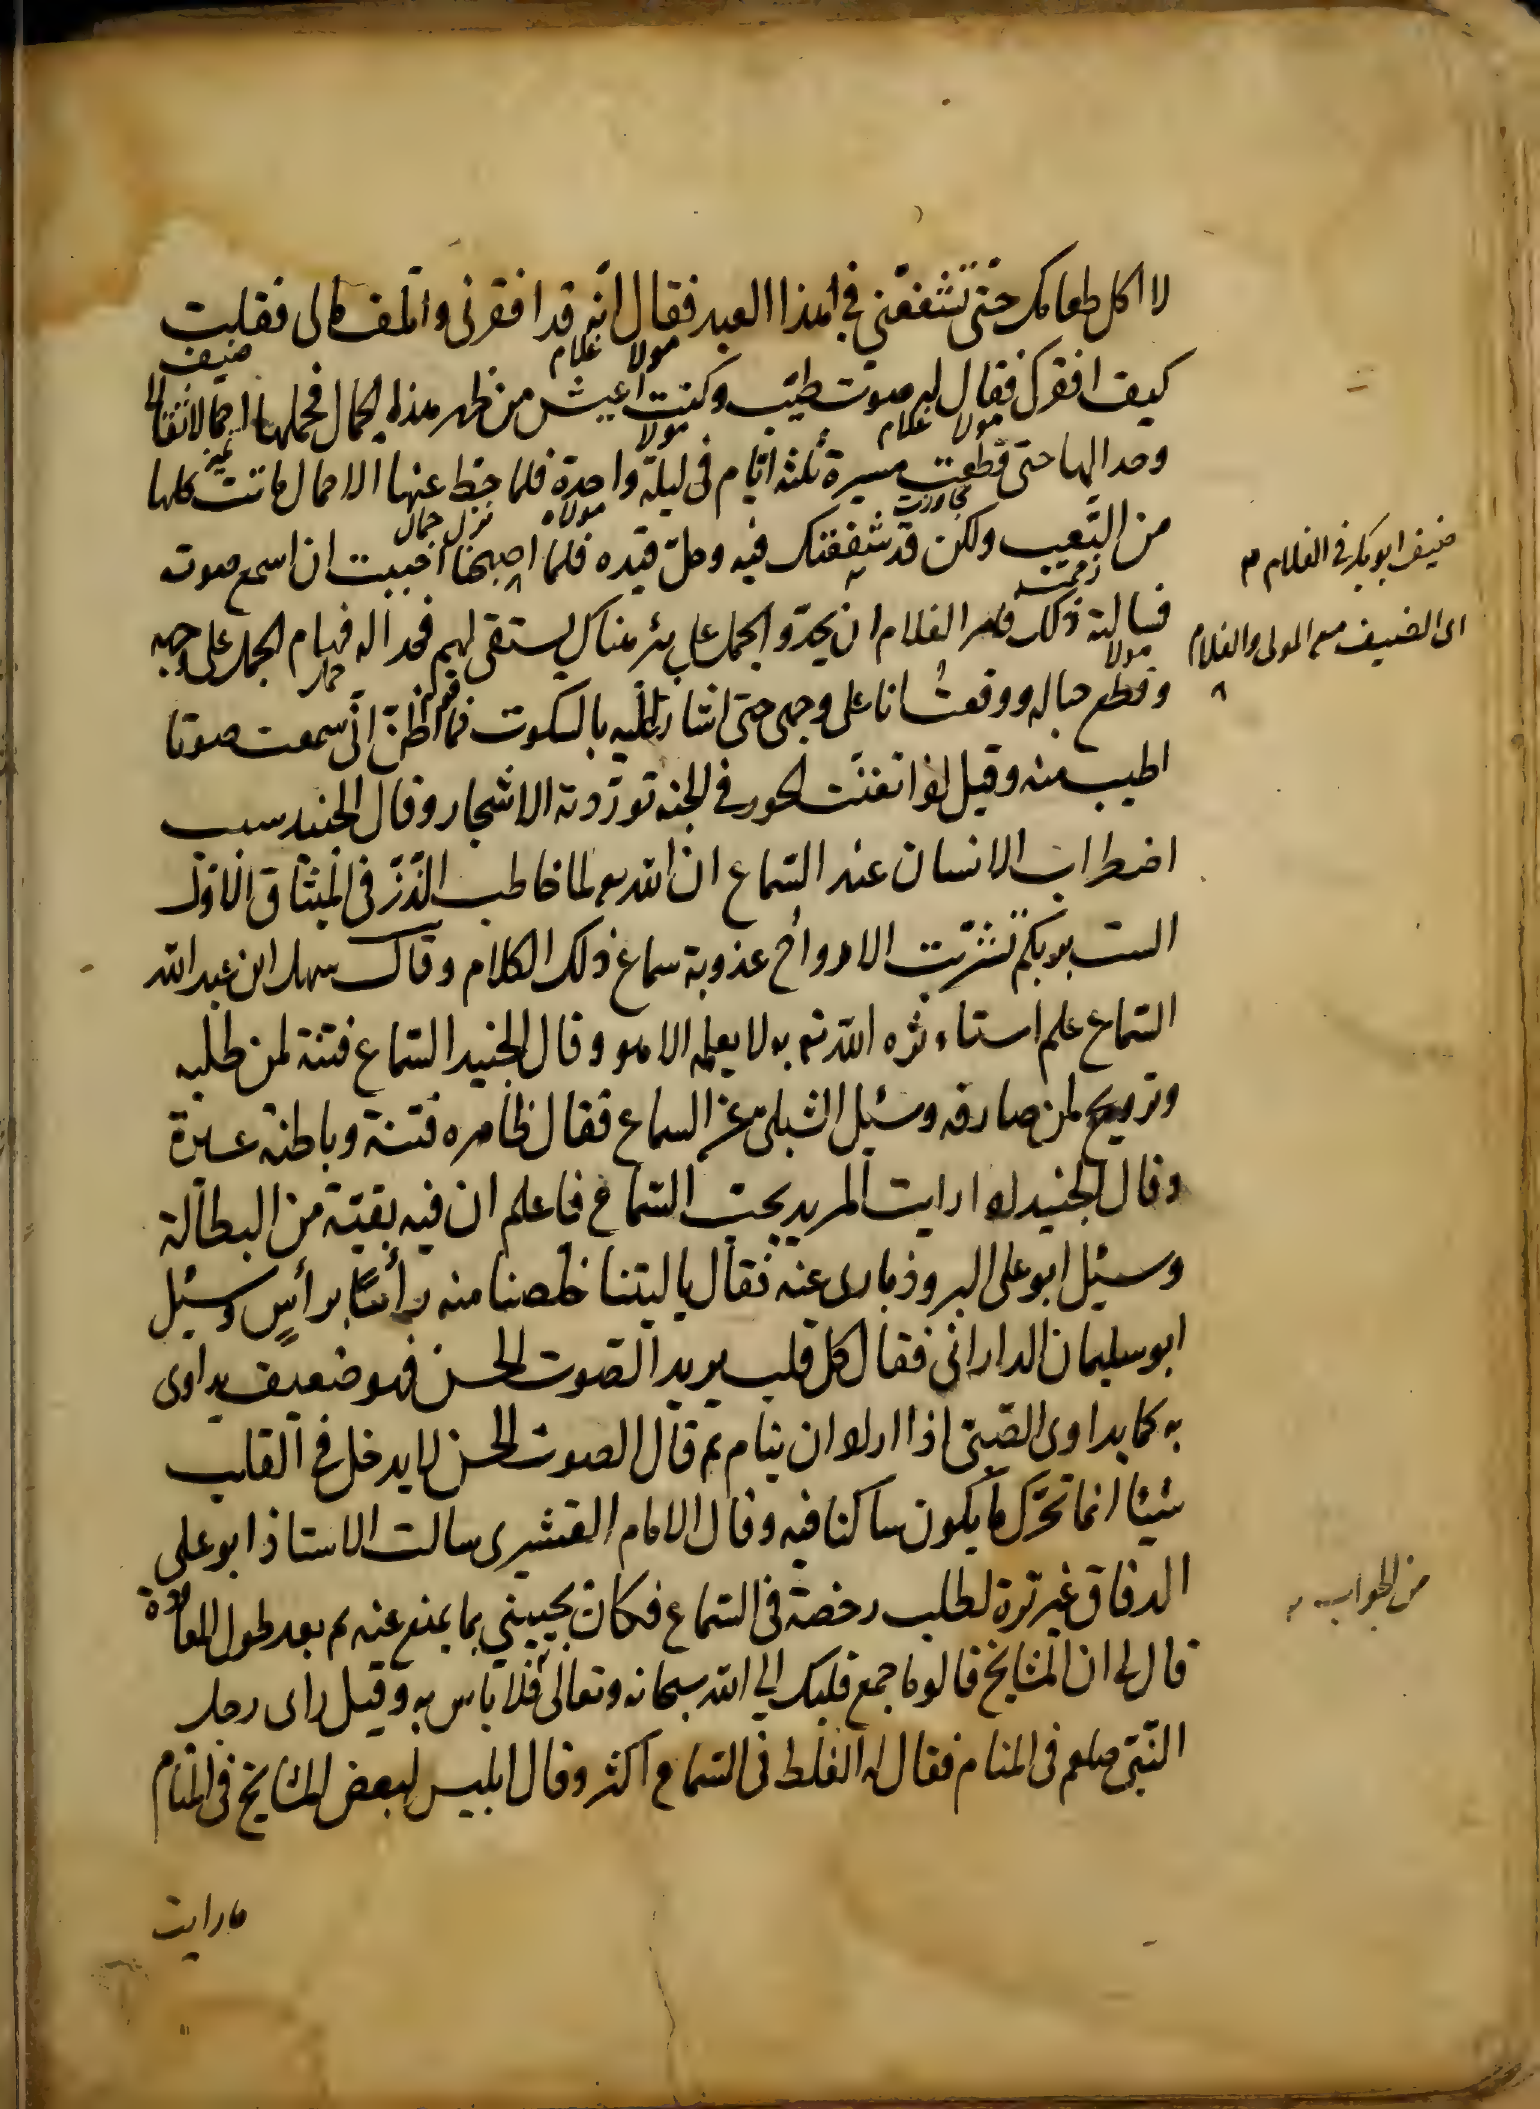 لا اكل طعامك حتى تشفعني في هذا العبد فقال انه قد افقرني واتلف مالى فقلت
مولا غلام ضيف
كيف افقرك فقال له صوت طيب وكنت اعيش من ظهر هذه الجمال فحملها احمالا ثقالا
مولا غلام مولا
وحدالها حتى قطعت مسيرة ثلثة ايام فى ليلة واحدة فلما حط عنها الاحمال ماتت كلها
تجاوزت مولاه نزل جمال
من التعب ولكن قد شفعتك فيه وحل قيده فلما اصبحنا احببت ان اسمع صوته
ضيف ابو بكر فى الغلام
فسالته ذلك فامر الغلام ان يحدو الجمل على بئر هناك يستقى لهم فحداله فهام الجمل على وجهه
اى الضيف مع المولى والغلام
مولا
وقطع حباله ووقعت انا على وجهى حتى اشار اليه بالسكوت فما اظن انى سمعت صوتا
اطيب منه وقيل اذا تغنت الحور فى الجنة توردت الاشجار وقال الجنيد سبب
اضطراب الانسان عند السماع ان الله تع لما خاطب الذر فى الميثاق الاول
الست بربكم تشربت الارواح عذوبة سماع ذلك الكلام وقال سهل ابن عبد الله
السماع علم استاءثره الله تع به لا يعلمه الا هو وقال الجنيد السماع فتنة لمن طلبه
وترويح لمن صادفه وسئل الشبلى عن السماع فقال ظاهره فتنة وباطنه عبرة
وقال الجنيد اذا رايت المريد يحب السماع فاعلم ان فيه بقية من البطالة
وسئل ابو على الروذبارى عنه فقال ياليتنا خلصنا منه رأسًا برأسٍ وسئل
ابو سليمان الدارانى فقال كل قلب يريد الصوت الحسن فهو ضعيف يداوى
به كما يداوى الصبى اذا اراد ان ينام ثم قال الصوت الحسن لا يدخل فى القلب
شيئا انما تحرك ما يكون ساكنا فيه وقال الامام القشيرى سالت الاستاذ ابو على
الدقاق غير ترة لطلب رخصة فى السماع فكان يجيبني بما يمنع عنه ثم بعد طول المعاودة
من الجواب
قال لى ان المشايخ قالو ما جمع قلبك الى الله سبحانه وتعالى فلا باس به وقيل راى رجل
النبى صلعم فى المنام فقال له الغلط فى السماع اكثر وقال ابليس لبعض المشايخ فى المنام
ما رايت